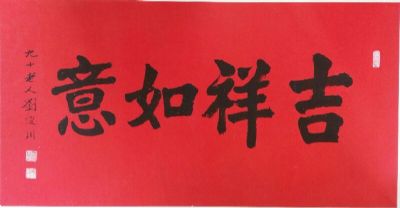 吉祥如意
九十老人劉俊川